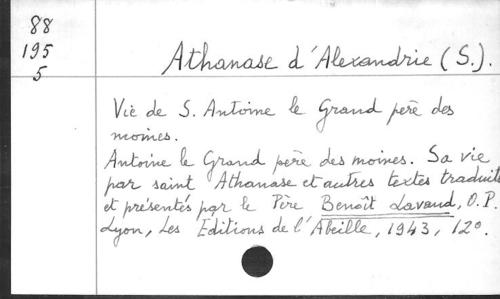 88
195
5
Athanase d'Alexandrie (S.).
Vie de S. Antoine le Grand père des
moines.
Antoine le Grand père des moines. Sa vie
par saint Athanase et autres textes traduits
et présentés par le Père Benoît Lavaud, O.P.
Lyon, Les Editions de l'Abeille, 1943, 12º.